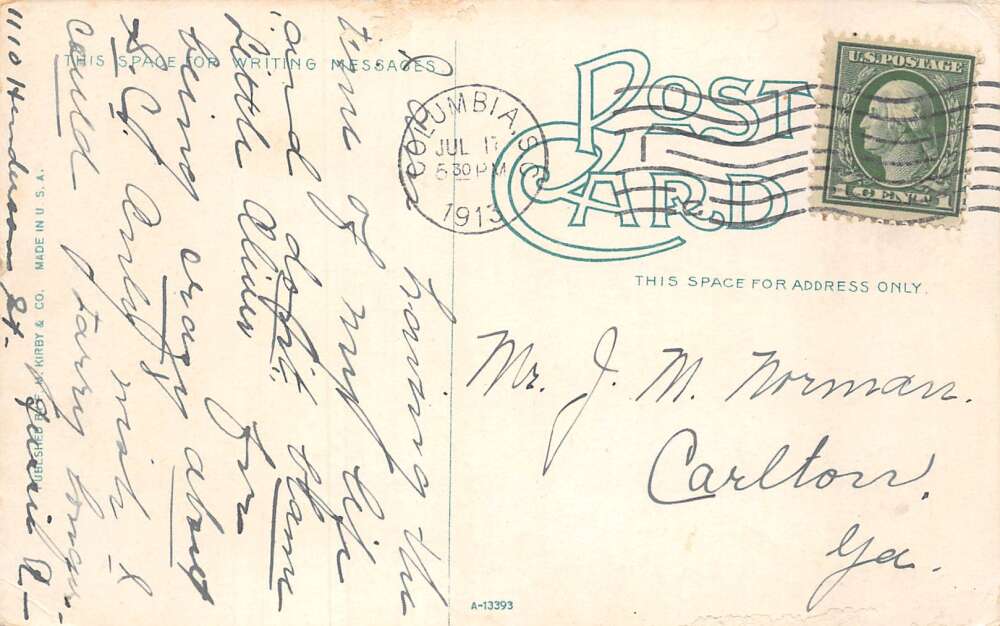 THIS SPACE FOR WRITING MESSAGES
having the
time of my life
and don't blame
Little for
being crazy about
S.C. Only wish I
could tarry longer.
1110 Henderson St.
PUBLISHED BY F. M. KIRBY & CO. MADE IN U.S.A.
COLUMBIA, S.C.
JUL 17
5 30 PM
1913
POST CARD
U.S. POSTAGE
1 CENT 1
THIS SPACE FOR ADDRESS ONLY.
Mr. J. M. Norman.
Carlton.
Ga.
A-13393